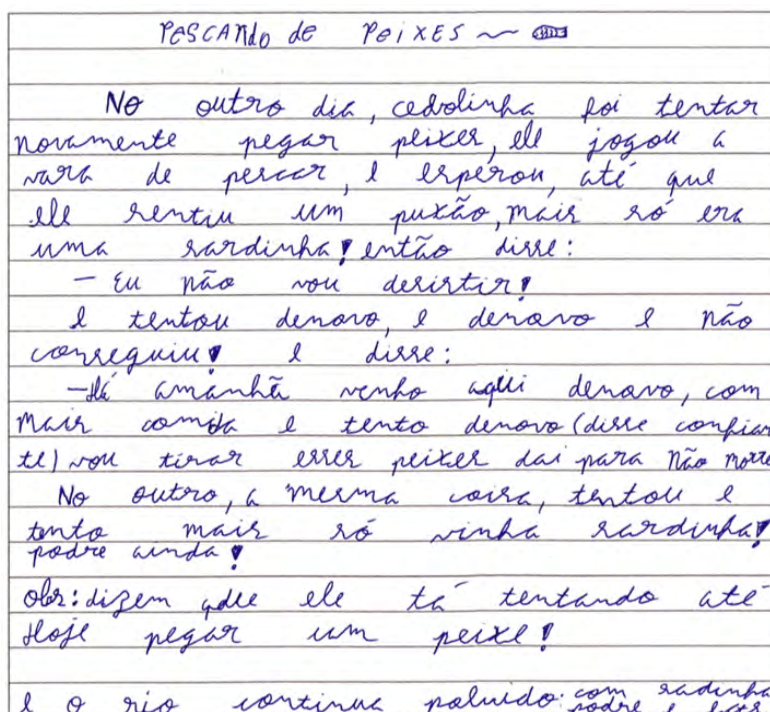 PESCANDO de PEIXES
No outro dia, cebolinha foi tentar
novamente pegar peixes, ele jogou a
vara de pescar, e esperou, até que
ele sentiu um puxão, mais só era
uma sardinha! então disse:
- Eu não vou desistir!
e tentou denovo, e denovo e não
conseguiu! e disse:
- Há amanhã venho aqui denovo, com
mais comida e tento denovo (disse confian
te) vou tirar esses peixes dai para não morre
No outro, a mesma coisa, tentou e
tento mais só vinha sardinha!
podre ainda!
obs: dizem que ele tá tentando até
Hoje pegar um peixe!
e o rio continua poluido: com sadinha
podre e